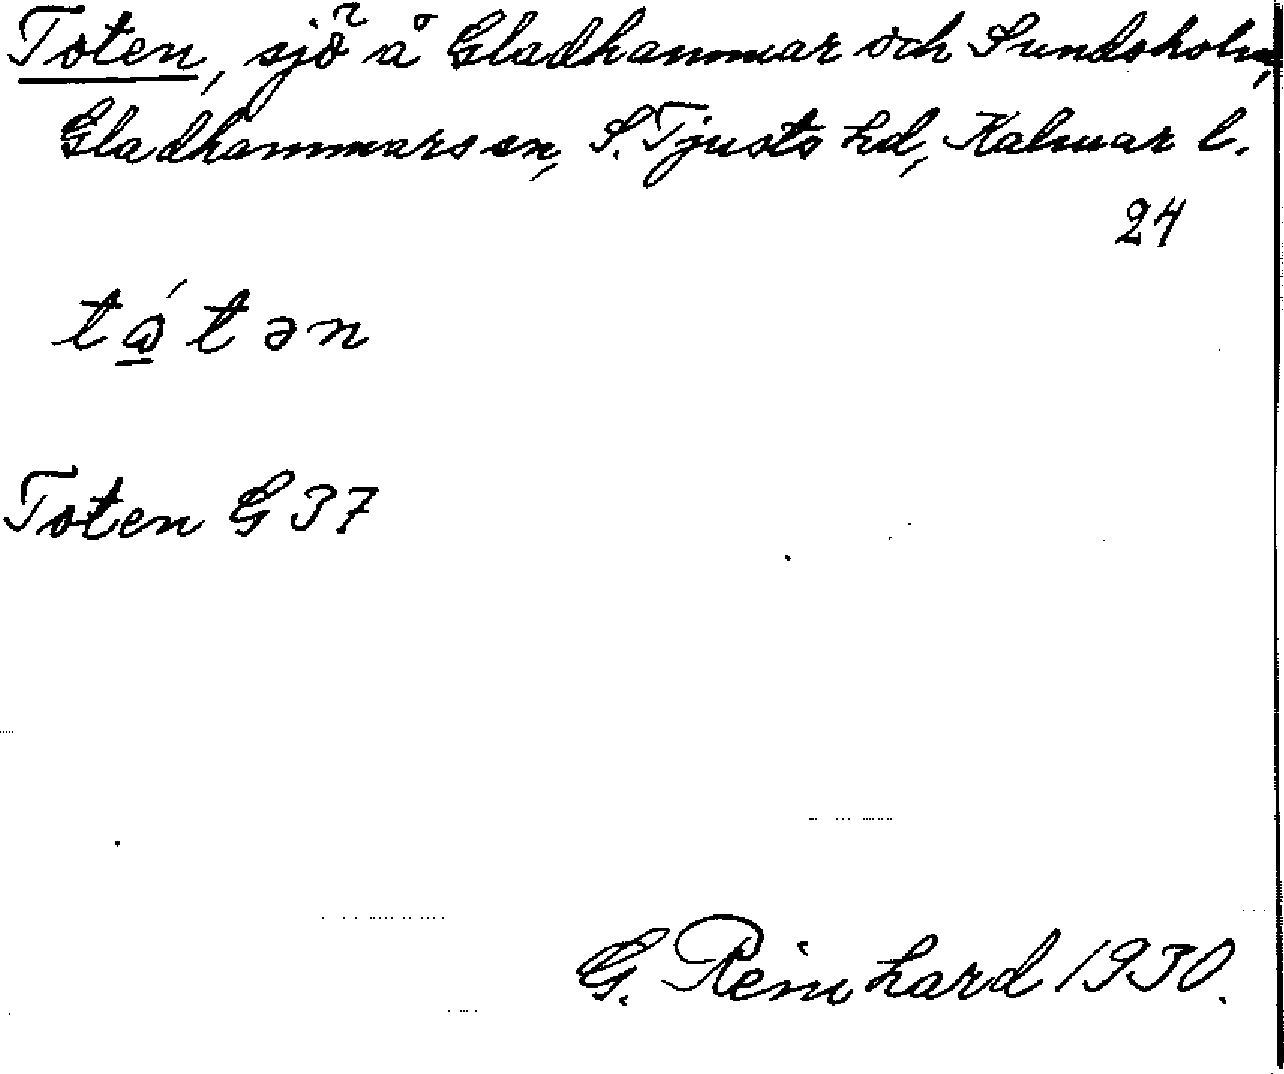 Toten, sjö å Gladhammar och Sundsholm,
Gladhammars sn, S. Tjusts hd, Kalmar l.
24
Toten G 37
G. Reinhard 1930.